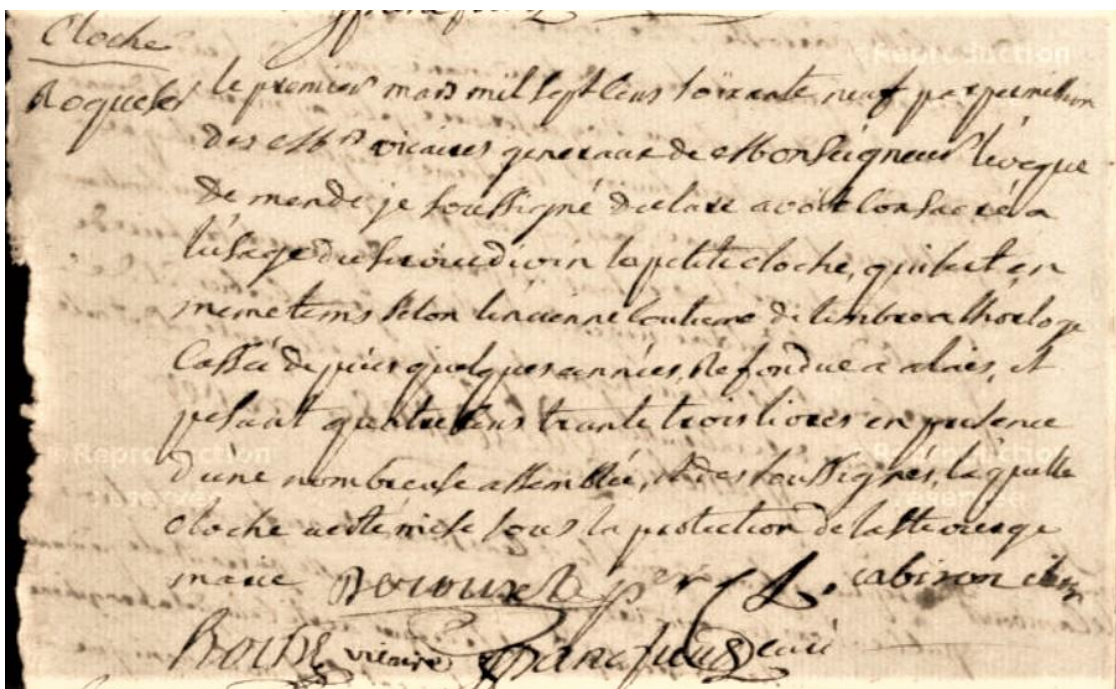 Cloche
Roquefer
le premier mars mil sept cens soixante neuf par permission
des MMrs vicaires generaux de Monseigneur l'évêque
de mende je soussigné declare avoir consacré a
l'usage du service divin la petite cloche, qui sert en
meme tems selon l'ancienne coutume de timbre a l'horloge
cassée depuis quelques années, refondue a alais, et
pesant quatre cens trante trois livres en presence
d'une nombreuse assemblée, et des soussignés, laquelle
cloche a esté mise sous la protection de la ste vierge
marie
vicaire curé
Reproduction
Reproduction
réservée
Reproduction
réservée